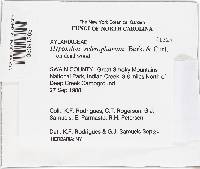 The New York Botanical Garden
FUNGI OF NORTH CAROLINA
XYLARIACEAE
Hypoxylon Berk. & Curt.
on dead wood
SWAIN COUNTY: Great Smoky Mountains
National Park, Indian Creek, miles North of
Deep Creek Campground
27 Sep 1988
Coll.: K.F. Rodrigues, C.T. Rogerson, G.J.
Samuels, E. Parmasto, R.H. Petersen
Det.: K.F. Rodrigues & G.J. Samuels
HERBARIA: NY